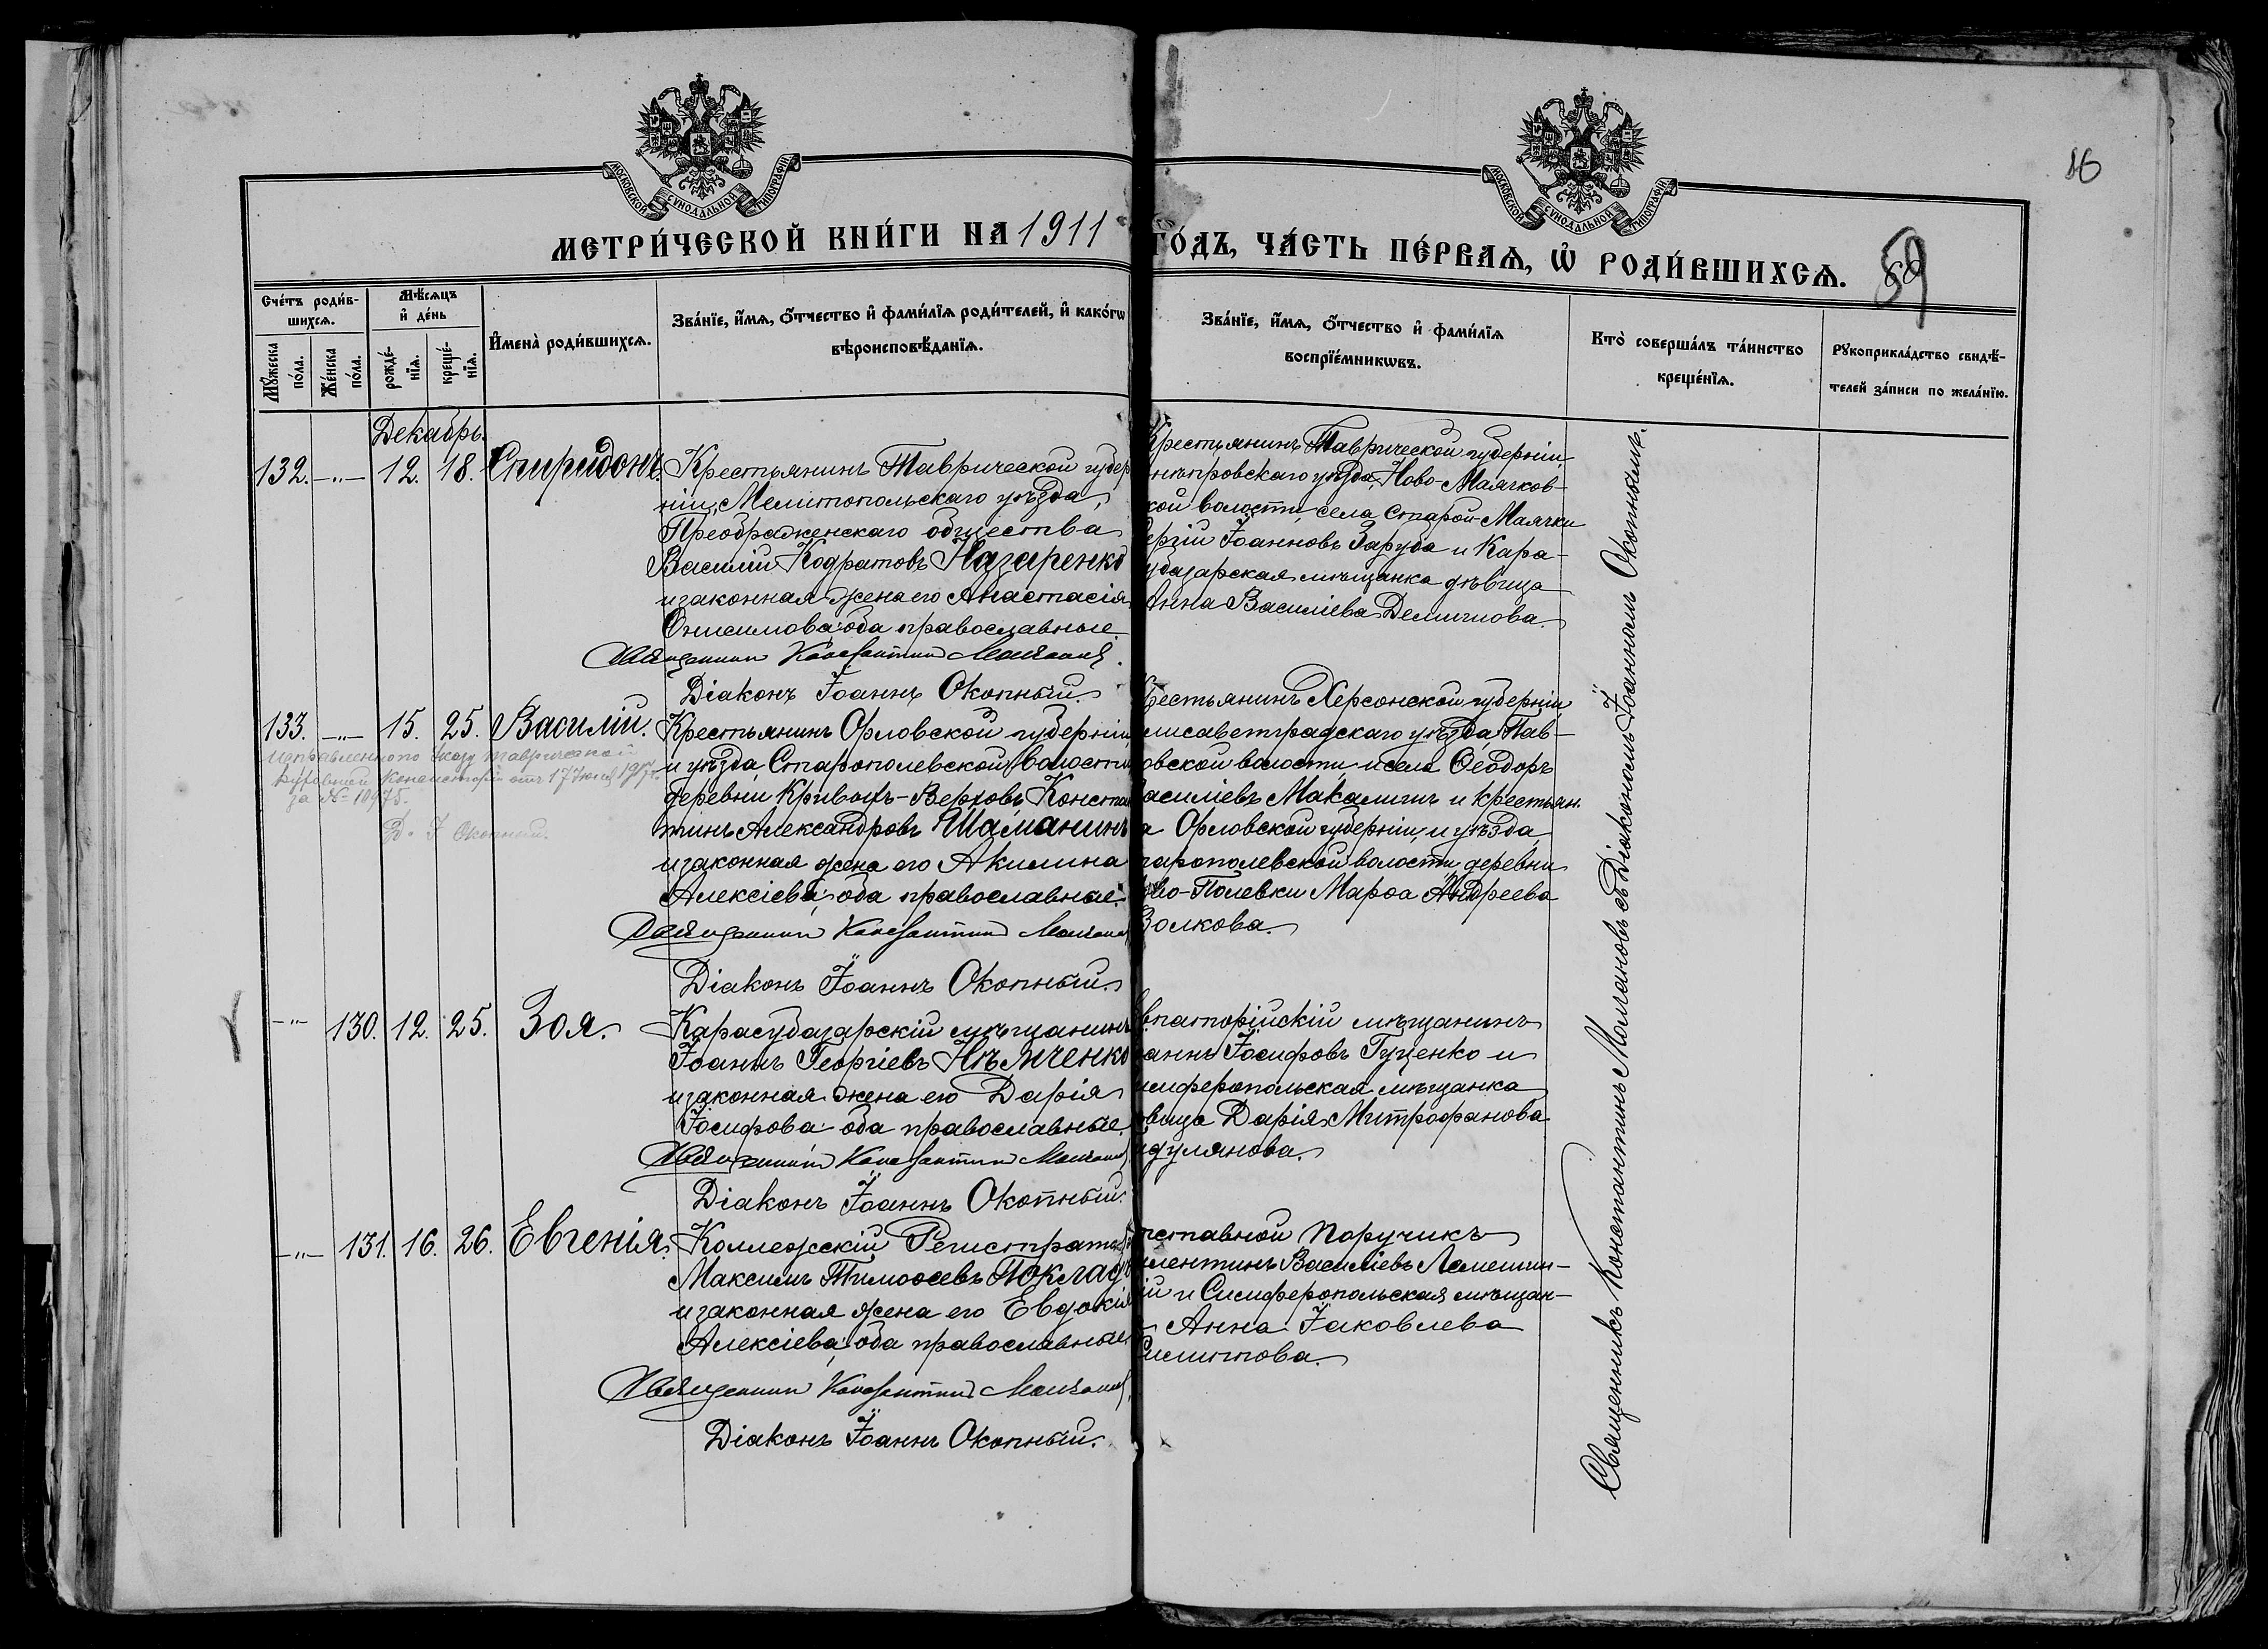 16
59
МОСКОВСКОЙ СѴНОДАЛЬНОЙ ТИПОГРАФІИ
МОСКОВСКОЙ СѴНОДАЛЬНОЙ ТИПОГРАФІИ
МЕТРИ́ЧЕСКОЙ КНИ́ГИ НА 1911
ГО́ДЪ, ЧА́СТЬ ПЕ́РВАѦ, Ѡ҆ РОДИ́ВШИХСѦ.
Сче́тъ роди́в-
шихсѧ.
Мѣ́сѧцъ
и҆ де́нь
Мꙋ́жеска
по́ла.
Же́нска
по́ла.
рожде́-
нїѧ.
креще́-
нїѧ.
И҆мена̀ роди́вшихсѧ.
Зва́нїе, и҆́мѧ, ѻ҆́тчество и҆ фами́лїѧ роди́телей, и҆ како́гѡ
вѣроисповѣ́данїѧ.
Зва́нїе, и҆́мѧ, ѻ҆́тчество и҆ фами́лїѧ
воспрїе́мникѡвъ.
Кто̀ соверша́лъ та́инство
креще́нїѧ.
Рꙋкоприкла́дство свидѣ́-
телей за́писи по жела́нїю.
Декабрь.
132. —„— 12. 18. Спиридонъ.
Крестьянинъ Таврической губер
ніи, Мелитопольскаго уѣзда,
Преображенскаго общества
Василій Кодратовъ Назаренко
и законная жена его Анастасія
Онисимова, оба православные.
Священникъ Константинъ Молчановъ.
Діаконъ Іоаннъ Окопный.
Крестьянинъ Таврической губерніи,
нѣпровскаго уѣзда, Ново-Маячков-
кой волости, села Старой-Маячки
ергій Іоанновъ Заруба и Кара-
убазарская мѣщанка дѣвица
Анна Василіева
133. —„— 15. 25. Василій.
исправлено по указу Таврической
Духовной Консисторіи отъ 17 Іюня
за № 10975.
Д. І Окопный.
Крестьянинъ Орловской губерніи,
и уѣзда, Старополевской волости
деревни Кривцъ-Верховъ Конста
тинъ Александровъ Шаманинъ
и законная жена его Акилина
Алексіева, оба православные.
Священникъ Константинъ Молчановъ
Діаконъ Іоаннъ Окопный.
рестьянинъ Херсонской губерніи,
лисаветградскаго уѣзда, Пав-
овской волости и села Ѳеодоръ
асиліевъ Макалишъ и крестьян.
а Орловской губерніи и уѣзда,
таропопевской волости деревни
ово-Полевки Марѳа Андреева
Волкова.
—„— 130. 12. 25. Зоя.
Карасубазарскій мѣщанинъ
Іоаннъ Георгіевъ Нѣмченко
и законная жена его Дарія
Іосифова оба православные.
Священникъ Константинъ Молчановъ
Діаконъ Іоаннъ Окопный.
Евпаторійскій мѣщанинъ
аннъ Іосифовъ Гуценко и
имферопольская мѣщанка
вица Дарія Митрофанова
дулянова.
—„— 131. 16. 26. Евгенія.
Коллежскій Регистрато
Максимъ Тимоѳеевъ Покладъ
и законная жена его Евдокія
Алексіева, оба православные
Священникъ Константинъ Молчановъ
Діаконъ Іоаннъ Окопный.
тставной Поручикъ
лентинъ Василіевъ Лемешин-
ій и Симферопольская мѣщан-
Анна Іаковлева
Священникъ Константинъ Молчановъ съ Діакономъ Іоанномъ Окопнымъ.